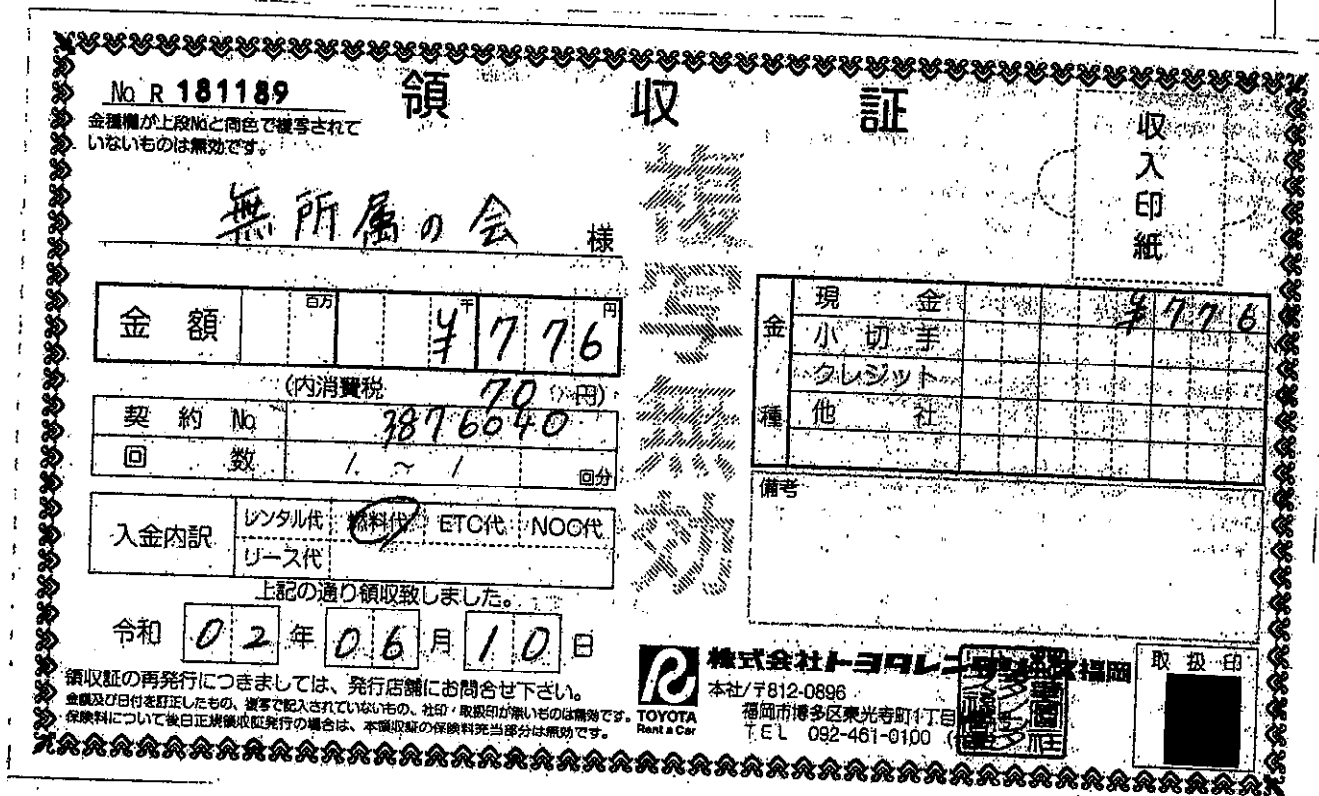 No. R 181189
領 収 証
金種欄が上段No.と同色で複写されて
いないものは無効です。
収入印紙
無所属の会 様
複写無効
金額 百万 千 円 ¥776
(内消費税 70 円)
契約 No. 3876040
回数 1 ~ 1 回分
入金内訳 レンタル代 燃料代 ETC代 NOC代
リース代
上記の通り領収致しました。
令和 02 年 06 月 10 日
金種
現金 ¥776
小切手
クレジット
他社
備考
領収証の再発行につきましては、発行店舗にお問合せ下さい。
金額及び日付を訂正したもの、複写で記入されていないもの、社印・取扱印が無いものは無効です。
保険料について後日正規領収証発行の場合は、本領収証の保険料充当部分は無効です。
TOYOTA
Rent a Car
株式会社トヨタレンタリース福岡
本社/〒812-0896
福岡市博多区東光寺町1丁目
TEL 092-461-0100
取扱印